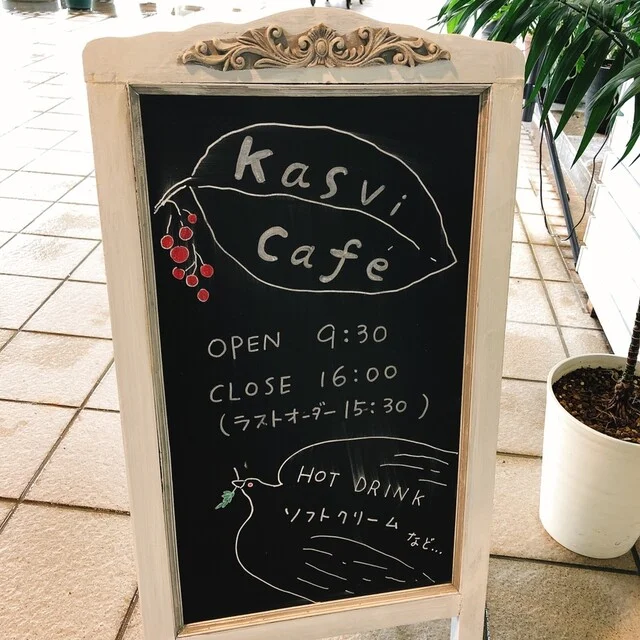 Kasvi
Café
OPEN 9:30
CLOSE 16:00
(ラストオーダー 15:30)
HOT DRINK
ソフトクリーム
など...